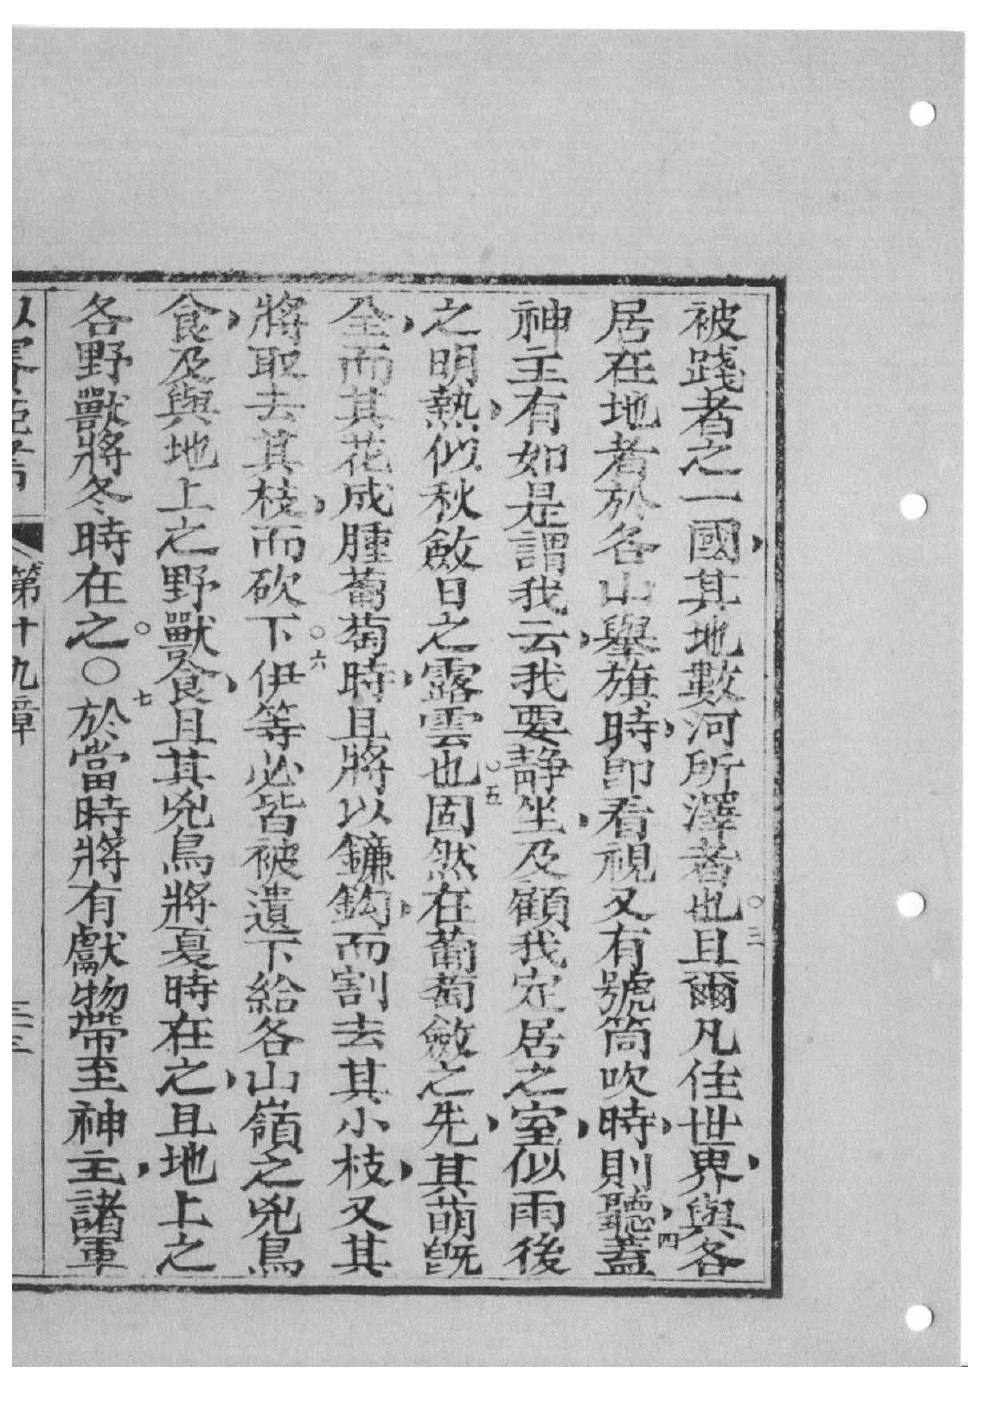 被踐者之一國其地數河所澤者也○三且爾凡住世界與各
居在地者於各山舉旗時卽看視又有號筒吹時則聽四蓋
神主有如是謂我云我要靜坐及顧我定居之室似雨後
之明熱似秋斂日之露雲也○五固然在葡萄斂之先其萌旣
全而其花成腫葡萄時且將以鐮鈎而割去其小枝又其
將取去其枝而砍下○六伊等必皆被遺下給各山嶺之兇鳥
食及與地上之野獸食且其兇鳥將夏時在之且地上之
各野獸將冬時在之○○七於當時將有獻物帶至神主諸軍
以賽亞書 第十九章